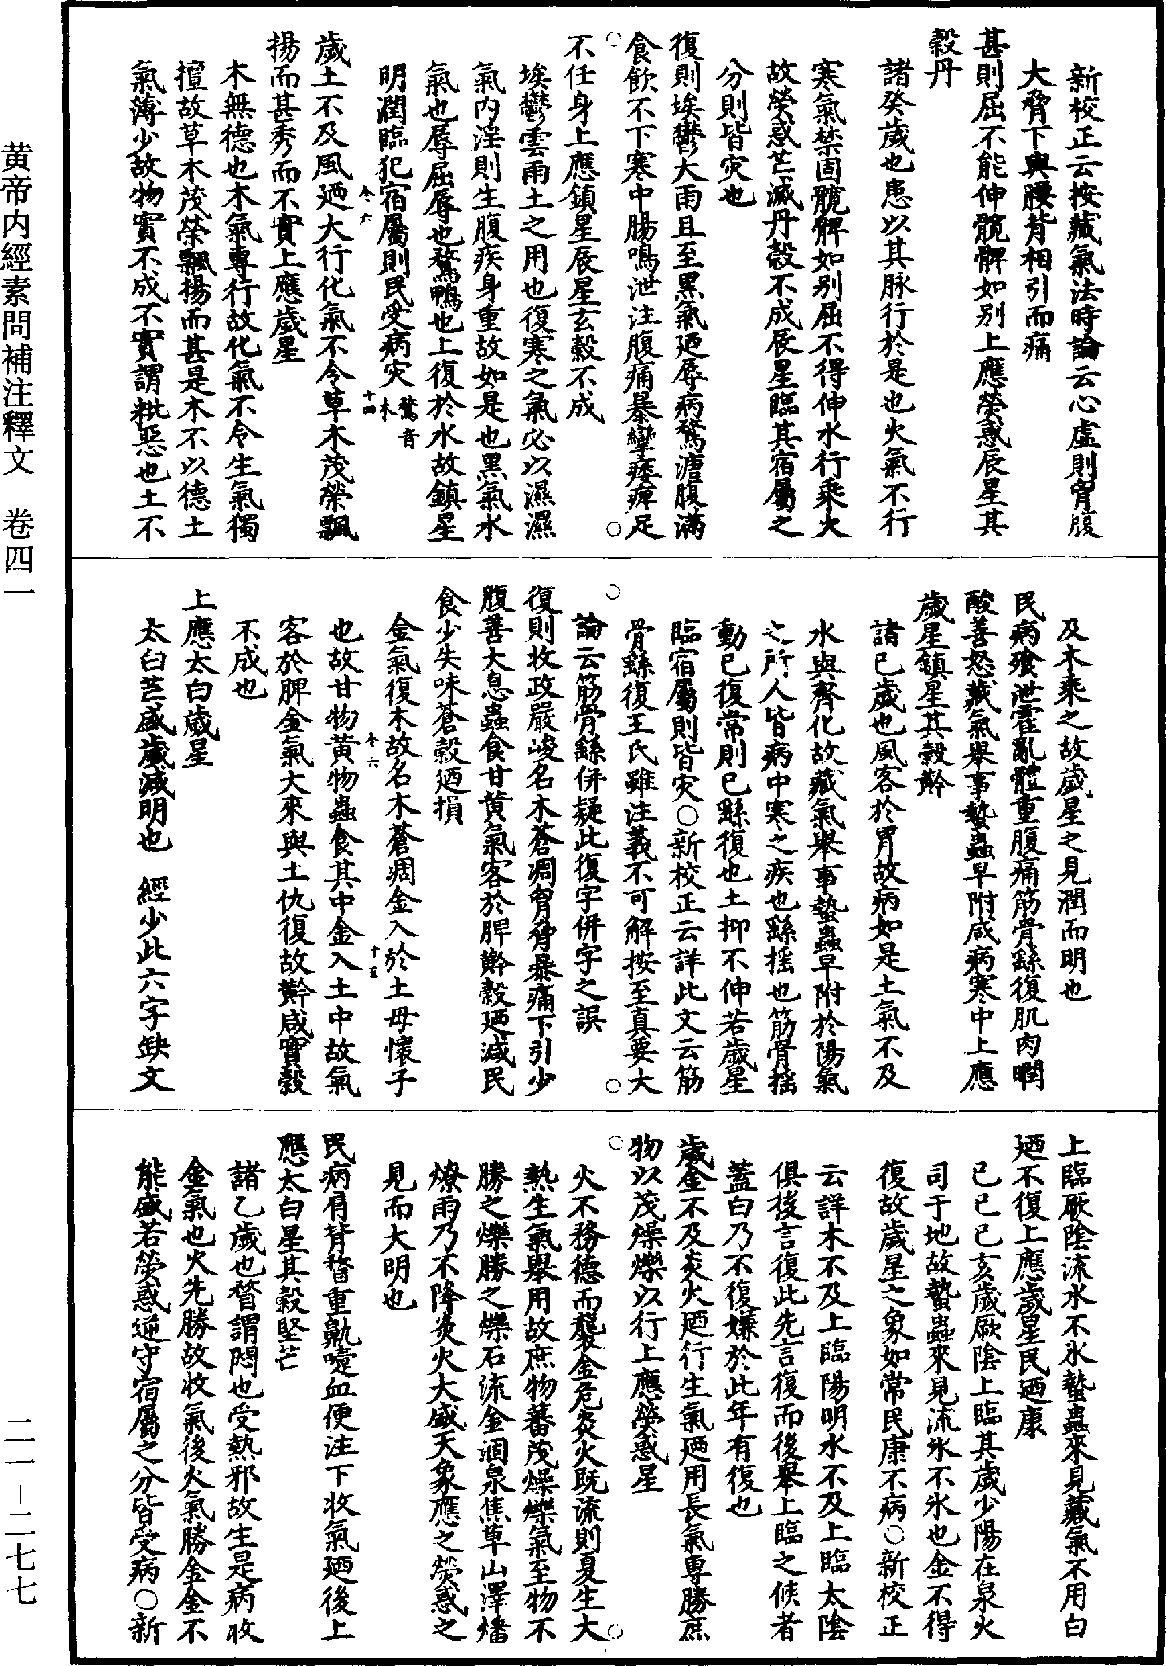 新校正云按藏氣法時論云心虛則胷腹
大脅下與腰背相引而痛
甚則屈不能伸髖髀如別上應熒惑辰星其
穀丹
諸癸歲也患以其脉行於是也火氣不行
寒氣禁固髖髀如別屈不得伸水行乘火
故熒惑芒減丹穀不成辰星臨其宿屬之
分則皆灾也
復則埃鬱大雨且至黑氣廼辱病鶩溏腹滿
食飲不下寒中腸鳴泄注腹痛暴攣痿痺足
不任身上應鎮星辰星玄穀不成
埃鬱雲雨土之用也復寒之氣必以濕濕
氣内淫則生腹疾身重故如是也黑氣水
氣也辱屈辱也鶩鴨也上復於水故鎮星
明潤臨犯宿屬則民受病灾鶩音木
歲土不及風廼大行化氣不令草木茂榮飄
揚而甚秀而不實上應歲星
木無德也木氣專行故化氣不令生氣獨
擅故草木茂榮飄揚而甚是木不以德土
氣薄少故物實不成不實謂粃惡也土不
及木乘之故歲星之見潤而明也
民病飱泄霍亂體重腹痛筋骨繇復肌肉瞤
酸善怒藏氣舉事蟄蟲早附咸病寒中上應
歲星鎮星其穀黅
諸己歲也風客於胃故病如是土氣不及
水與齊化故藏氣舉事蟄蟲早附於陽氣
之所人皆病中寒之疾也繇搖也筋骨搖
動已復常則已繇復也土抑不伸若歲星
臨宿屬則皆灾○新校正云詳此文云筋
骨繇復王氏雖注義不可解按至真要大
論云筋骨繇併疑此復字併字之誤
復則收政嚴峻名木蒼凋胷脅暴痛下引少
腹善大息蟲食甘黄氣客於脾黅穀廼減民
食少失味蒼穀廼損
金氣復木故名木蒼凋金入於土母懷子
也故甘物黄物蟲食其中金入土中故氣
客於脾金氣大來與土仇復故黅咸實穀
不成也
上應太白歲星
太白芒盛歲減明也 經少此六字缺文
上臨厥陰流水不氷蟄蟲來見藏氣不用白
廼不復上應歲星民廼康
己巳己亥歲厥陰上臨其歲少陽在泉火
司于地故蟄蟲來見流水不氷也金不得
復故歲星之象如常民康不病○新校正
云詳木不及上臨陽明水不及上臨太陰
俱後言復此先言復而後舉上臨之候者
蓋白乃不復嫌於此年有復也
歲金不及炎火廼行生氣廼用長氣專勝庶
物以茂燥爍以行上應熒惑星
火不務德而襲金危炎火既流則夏生大
熱生氣舉用故庶物蕃茂燥爍氣至物不
勝之爍勝之爍石流金涸泉焦草山澤燔
燎雨乃不降炎火大盛天象應之熒惑之
見而大明也
民病肩背瞀重鼽嚏血便注下收氣廼後上
應太白星其穀堅芒
諸乙歲也瞀謂悶也受熱邪故生是病收
金氣也火先勝故收氣後火氣勝金金不
能盛若熒惑逆守宿屬之分皆受病○新
黄帝内經素問補注釋文 卷四一
二一－二七七